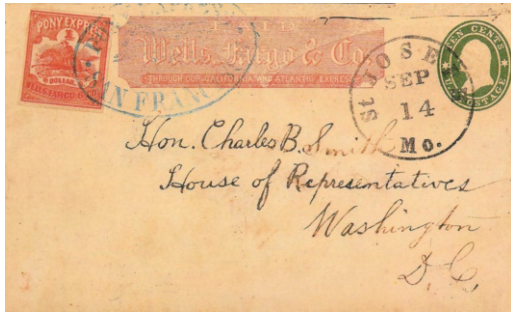 PONY EXPRESS
DOLLAR
WELLS, FARGO &
SAN FRANC
Wells, Fargo & Co.
THROUGH OUR CALIFORNIA AND ATLANTIC EXPRESS
St JOSEPH
SEP
14
Mo.
TEN CENTS
POSTAGE
Hon. Charles B. Smith
House of Representatives
Washington
D. C.